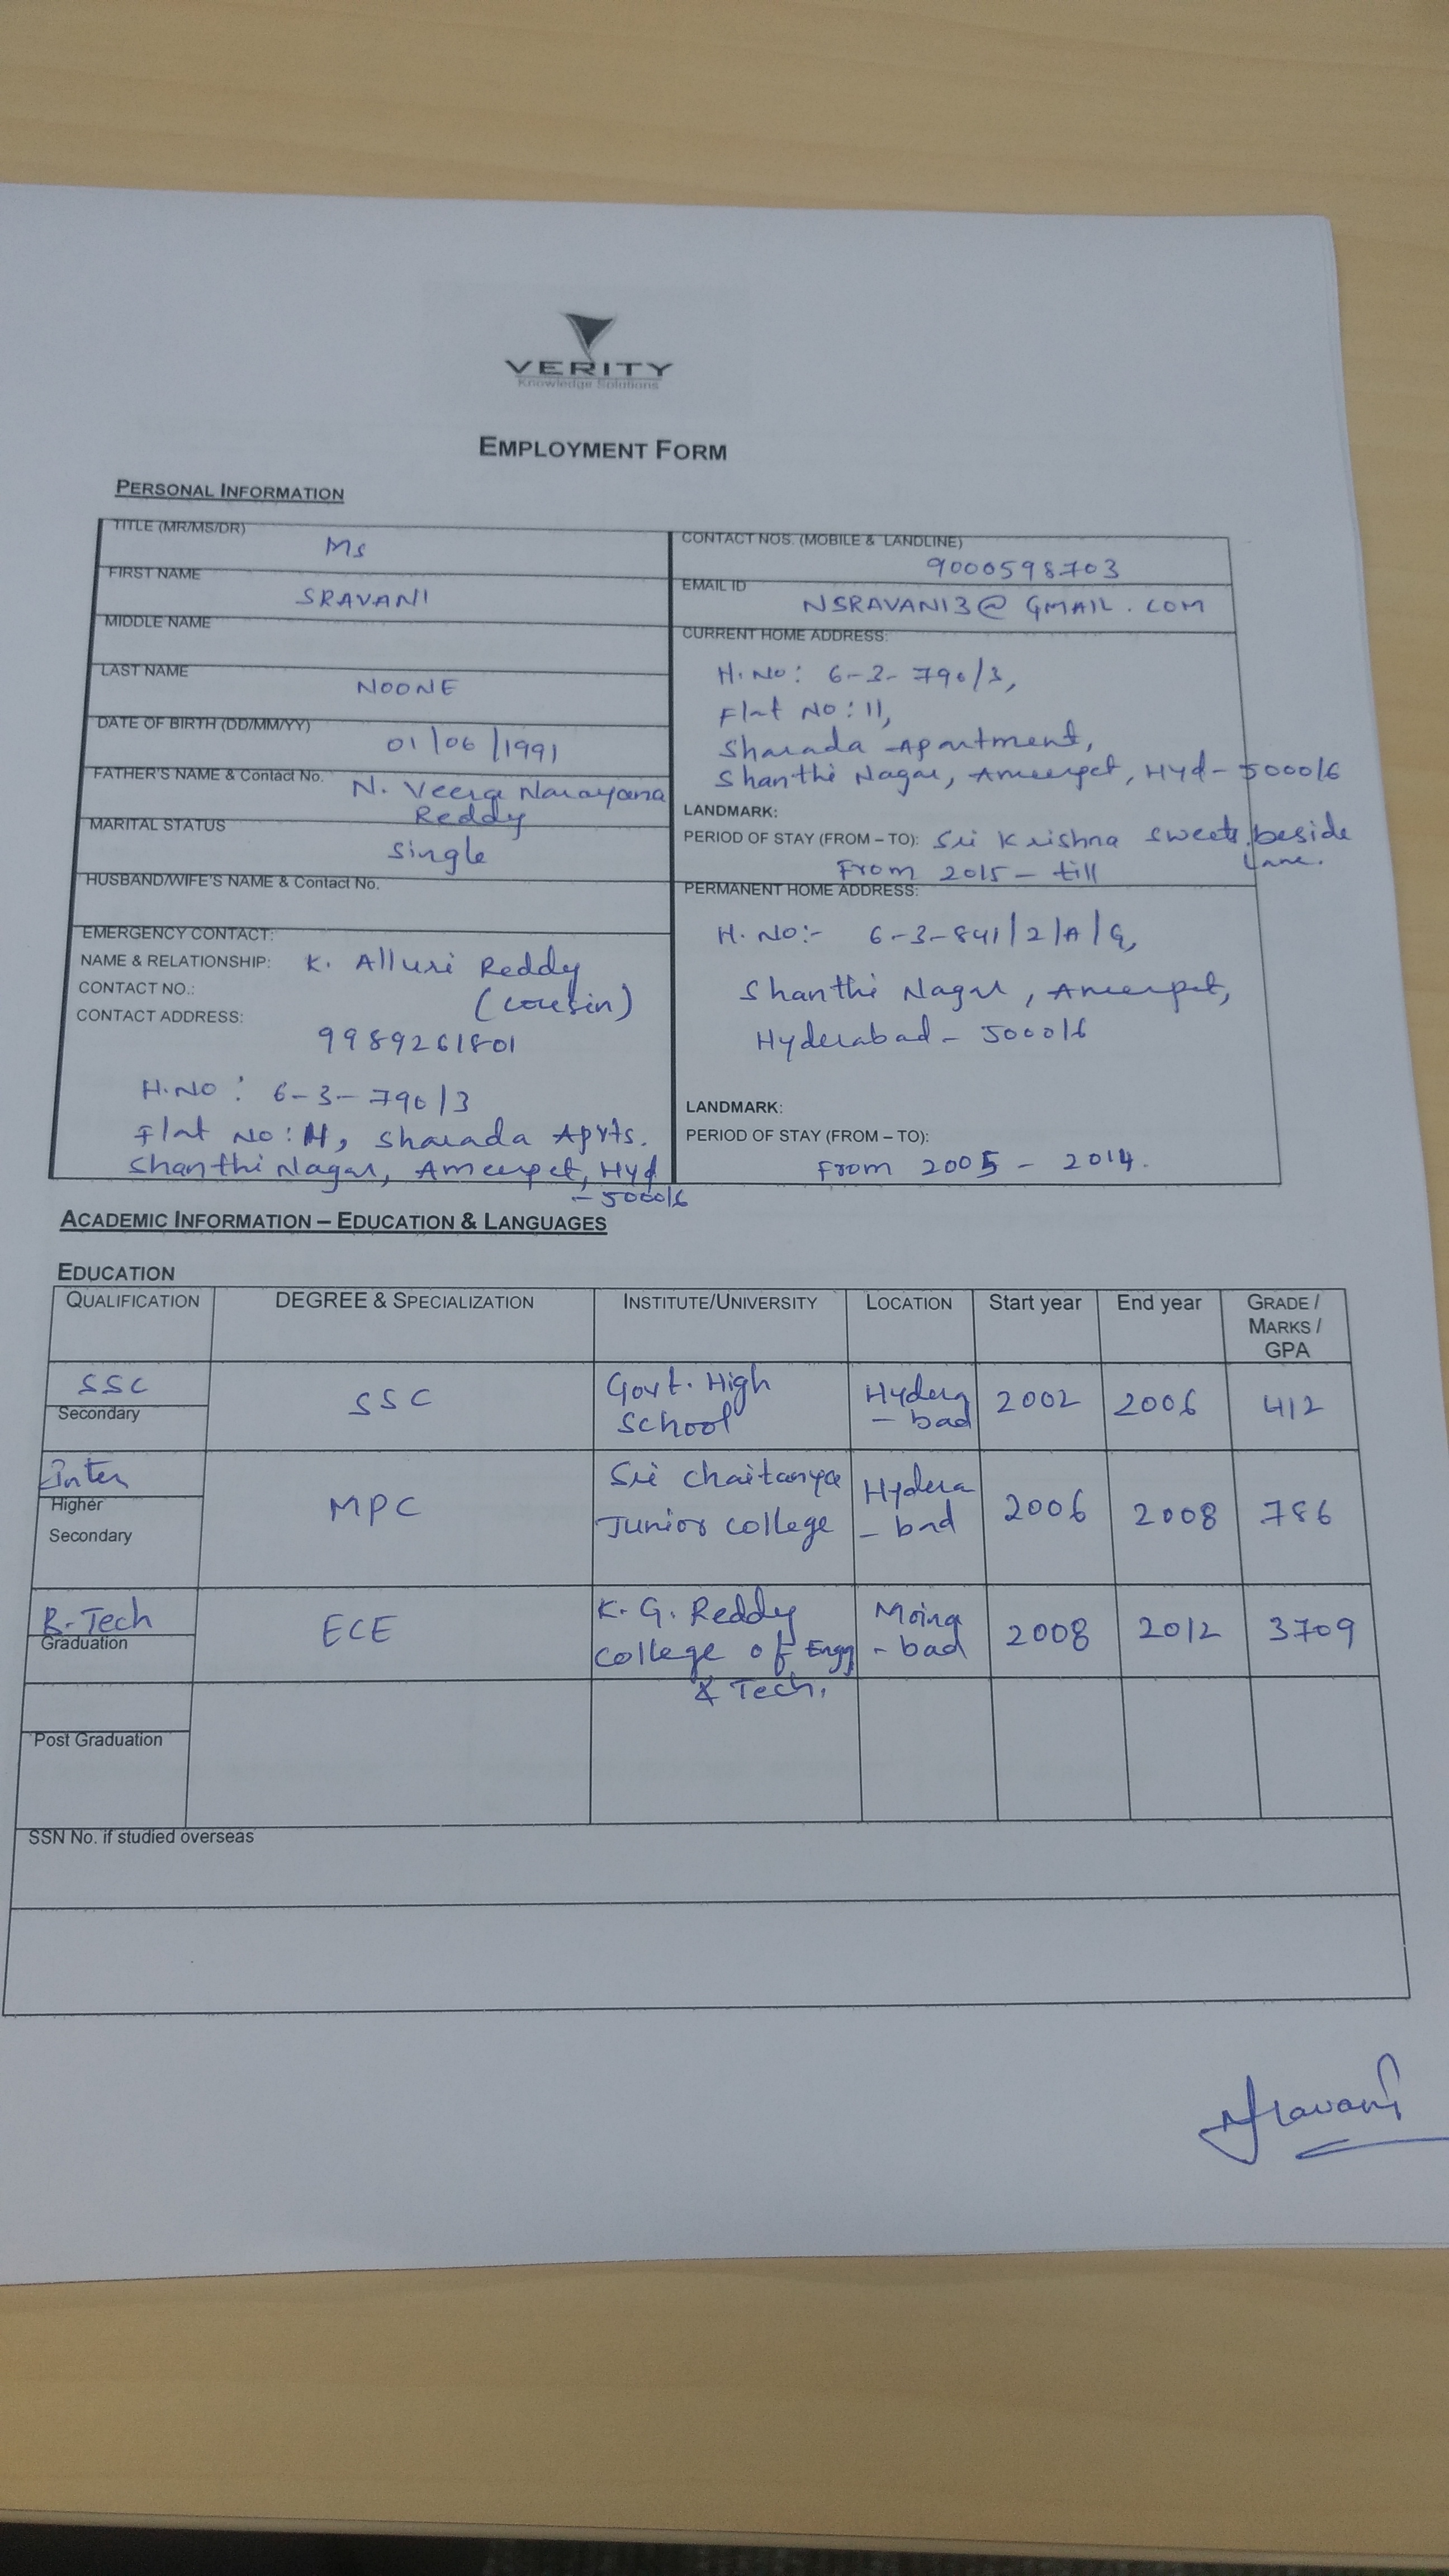 VERITY
Knowledge Solutions
EMPLOYMENT FORM
PERSONAL INFORMATION
TITLE (MR/MS/DR)
Ms
FIRST NAME
SRAVANI
MIDDLE NAME
LAST NAME
NOONE
DATE OF BIRTH (DD/MM/YY)
01/06/1991
FATHER'S NAME & Contact No.
N. Veera Narayana
Reddy
MARITAL STATUS
Single
HUSBAND/WIFE'S NAME & Contact No.
EMERGENCY CONTACT:
NAME & RELATIONSHIP: K. Alluri Reddy
(cousin)
CONTACT NO.:
CONTACT ADDRESS:
9989261801
H.NO: 6-3-790/3
Flat No: 11, Sharada Apvts.
Shanthi Nagar, Ameerpet, Hyd
- 500016
CONTACT NOS. (MOBILE & LANDLINE)
9000598703
EMAIL ID
NSRAVANI3@GMAIL.COM
CURRENT HOME ADDRESS:
H.No: 6-3-790/3,
Flat No: 11,
Sharada Apartment,
Shanthi Nagar, Ameerpet, Hyd-500016
LANDMARK:
PERIOD OF STAY (FROM – TO): Sri Krishna sweets, beside
Lane.
From 2015 - till
PERMANENT HOME ADDRESS:
H.NO:- 6-3-841/2/A/G,
Shanthi Nagar, Ameerpet,
Hyderabad - 500016
LANDMARK:
PERIOD OF STAY (FROM – TO):
From 2005 - 2014.
ACADEMIC INFORMATION – EDUCATION & LANGUAGES
EDUCATION
QUALIFICATION DEGREE & SPECIALIZATION INSTITUTE/UNIVERSITY LOCATION Start year End year GRADE / MARKS / GPA
SSC
Secondary
SSC
Govt. High
School
Hydera
- bad
2002 2006 412
Inter
Higher
Secondary
MPC
Sri chaitanya
Junior college
Hydera
- bad
2006 2008 786
B-Tech
Graduation
ECE
K. G. Reddy
College of Engg
& Tech.
Moina
- bad
2008 2012 3709
Post Graduation
SSN No. if studied overseas
NSravani